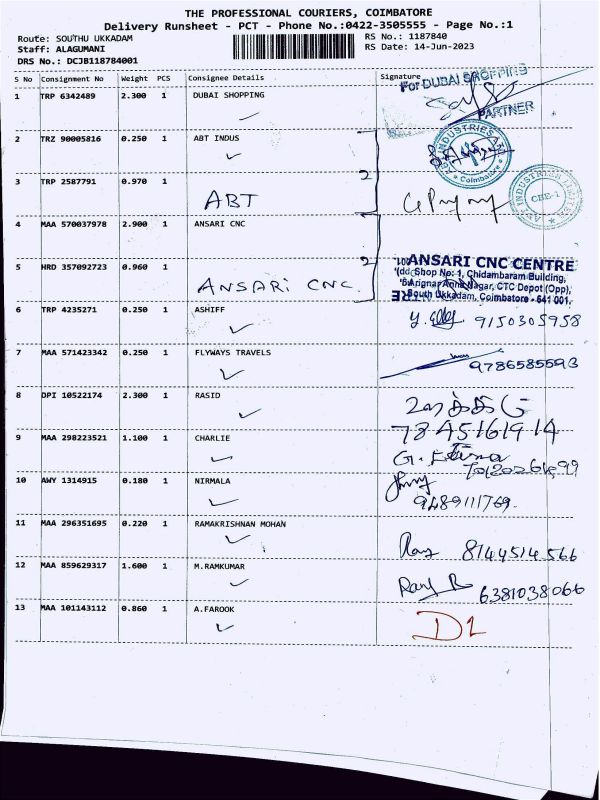 THE PROFESSIONAL COURIERS, COIMBATORE
Delivery Runsheet - PCT - Phone No.:0422-3505555 - Page No.:1
Route: SOUTHU UKKADAM
RS No.: 1187840
Staff: ALAGUMANI
RS Date: 14-Jun-2023
DRS No.: DCJB118784001
S No Consignment No Weight PCS Consignee Details Signature
For DUBAI SHOPPING
1 TRP 6342489 2.300 1 DUBAI SHOPPING
PARTNER
2 TRZ 90005816 0.250 1 ABT INDUS
Coimbatore
3 TRP 2587791 0.970 1
2
ABT
CBE-1
4 MAA 570037978 2.900 1 ANSARI CNC
5 HRD 357092723 0.960 1
2
ANSARI CNC.
ANSARI CNC CENTRE
Shop No: 1, Chidambaram Building,
Arignar Anna Nagar, CTC Depot (Opp),
South Ukkadam, Coimbatore - 641 001.
6 TRP 4235271 0.250 1 ASHIFF
9150305958
7 MAA 571423342 0.250 1 FLYWAYS TRAVELS
9786585593
8 DPI 10522174 2.300 1 RASID
9 MAA 298223521 1.100 1 CHARLIE
10 AWY 1314915 0.180 1 NIRMALA
9489111769.
11 MAA 296351695 0.220 1 RAMAKRISHNAN MOHAN
8144514566
12 MAA 859629317 1.600 1 M.RAMKUMAR
6381038066
13 MAA 101143112 0.860 1 A.FAROOK
D1